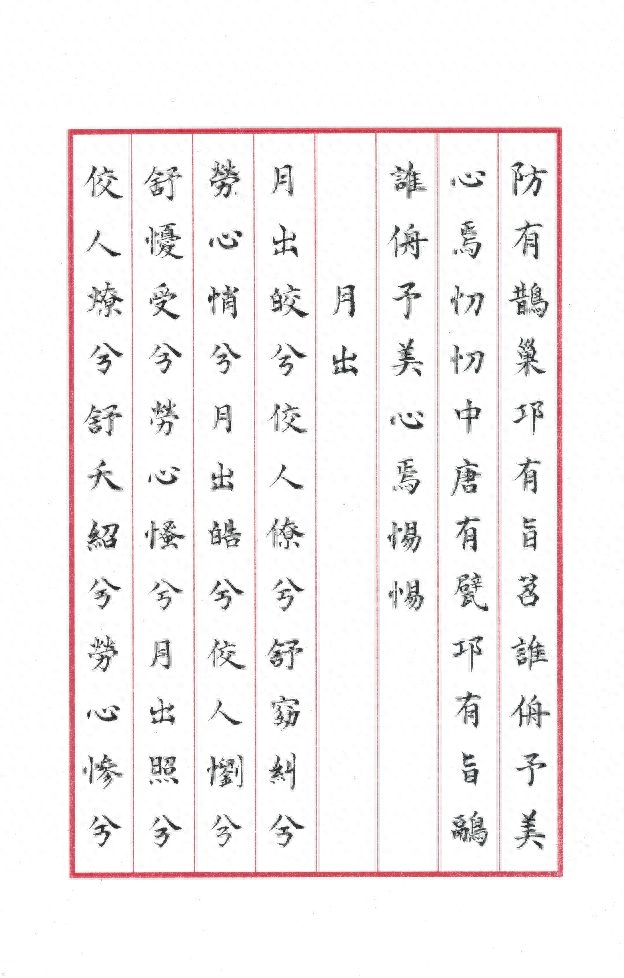 防有鵲巢邛有旨苕誰侜予美
心焉忉忉中唐有甓邛有旨鷊
誰侜予美心焉惕惕
月出
月出皎兮佼人僚兮舒窈糾兮
勞心悄兮月出皓兮佼人懰兮
舒懮受兮勞心慅兮月出照兮
佼人燎兮舒夭紹兮勞心慘兮